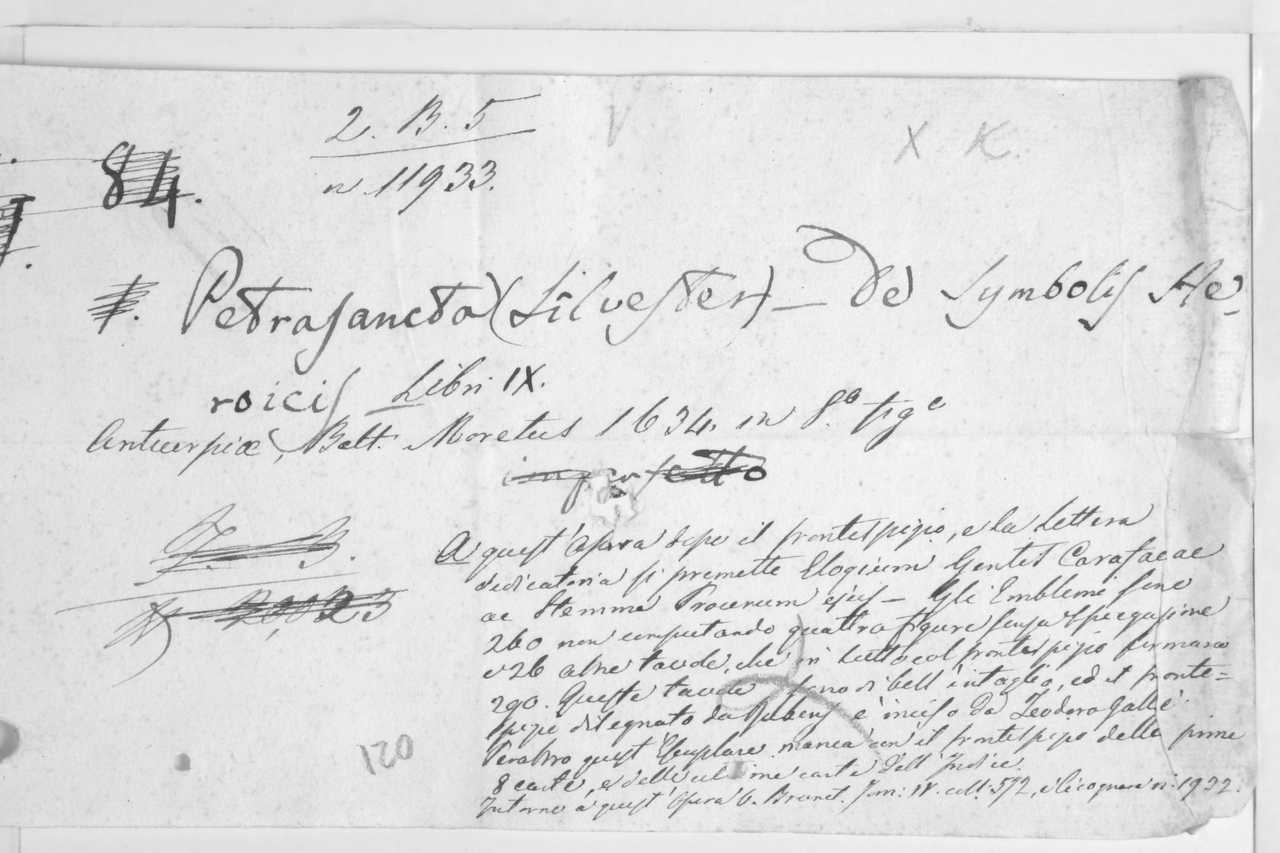 2. B. 5
n. 11933.
X K.
84.
Petrasancta (Silvester) — De Symbolis He-
roicis Libri IX.
Antuerpiae, Balt. Moretus 1634. in 8.º fig.e
imperfetto
A quest'opera dopo il frontespizio, e la Lettera
dedicatoria si premette Elogium Gentis Carafaeae
ac Stemma Procerum ejus — Gli Emblemi sono
260 non computando quattro figure senza spiegazione
e 26 altre tavole, che in tutto col frontespizio formano
290. Queste tavole sono di bell'intaglio, ed il fronte=
spizio disegnato da Rubens è inciso da Teodoro Galle.
Peraltro quest'Esemplare manca con il frontespizio delle prime
8 carte, e delle ultime carte dell'Indice.
Intorno a quest'Opera v. Brunet. Tom: IV. coll: 572, e Cicognara n: 1932.
120